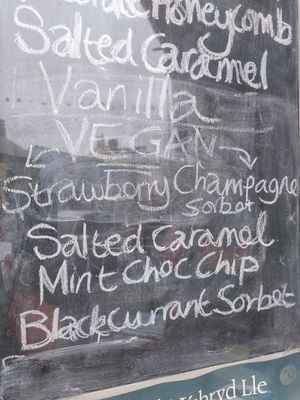 Honeycomb
Salted Caramel
Vanilla
VEGAN
Strawberry Champagne
Sorbet
Salted Caramel
Mint Choc Chip
Blackcurrant Sorbet
Lle